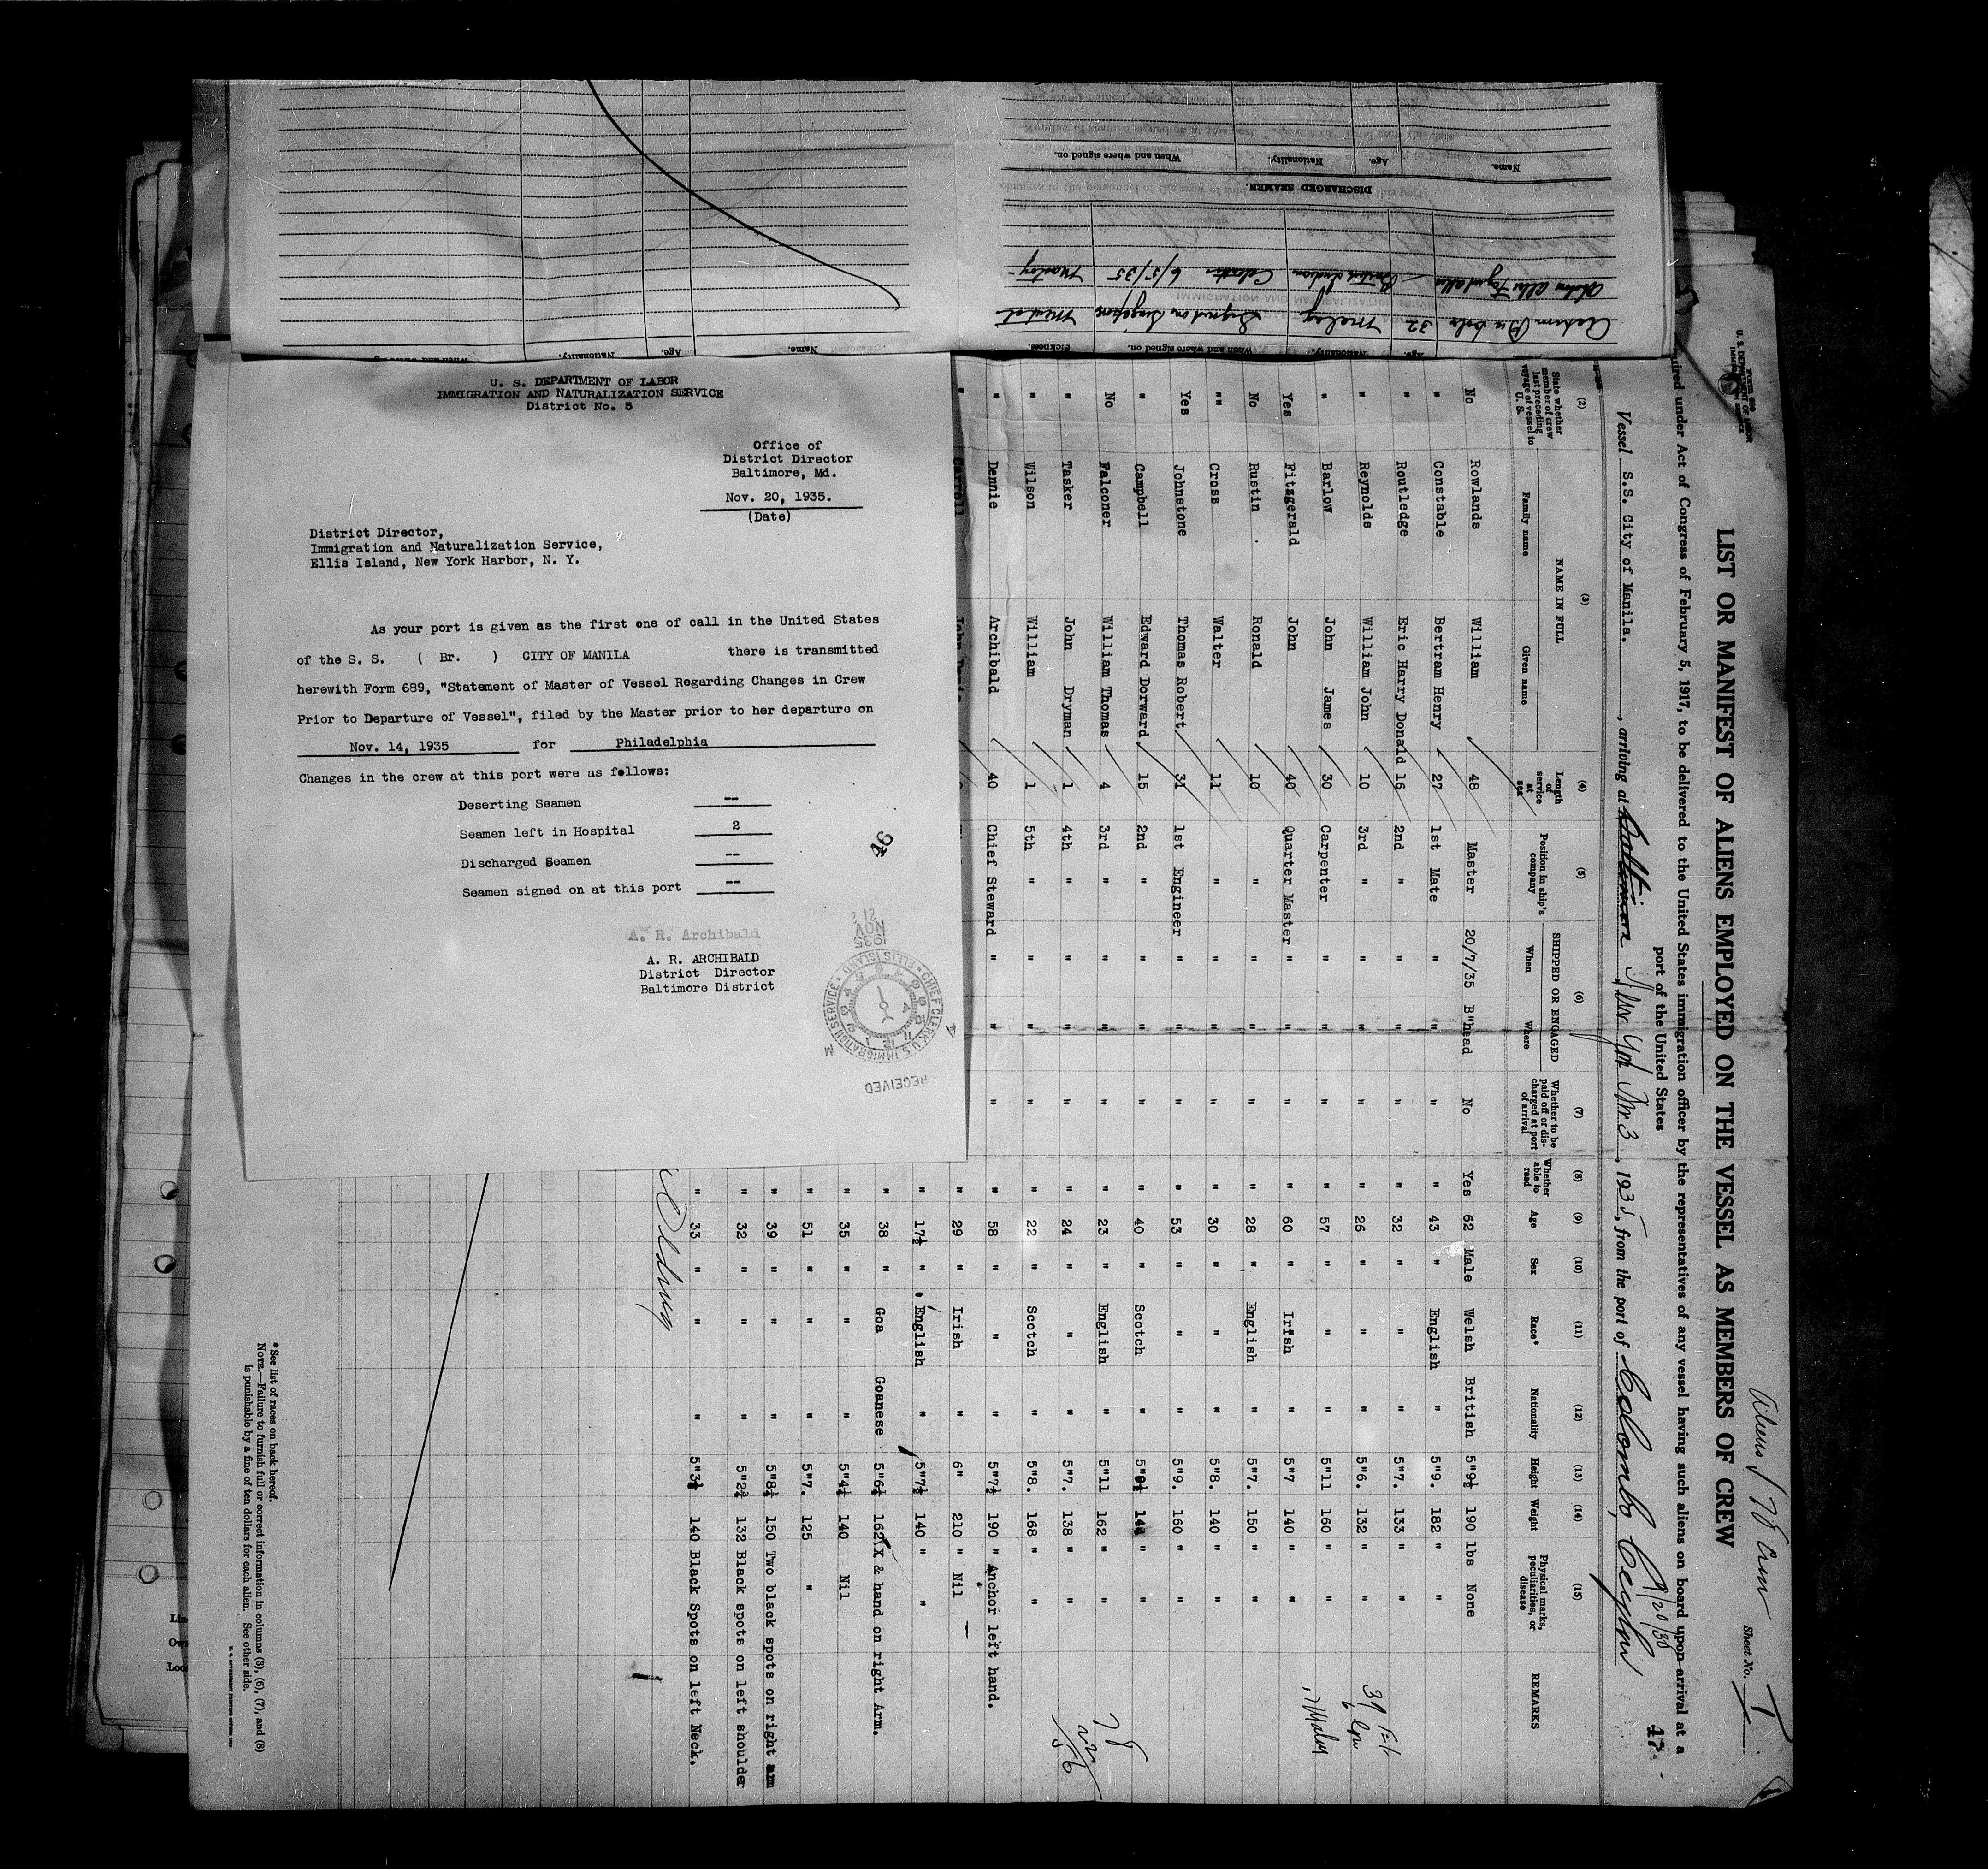 U. S. DEPARTMENT OF LABOR
IMMIGRATION AND NATURALIZATION SERVICE
District No. 5
Office of
District Director
Baltimore, Md.
Nov. 20, 1935.
(Date)
District Director,
Immigration and Naturalization Service,
Ellis Island, New York Harbor, N. Y.
As your port is given as the first one of call in the United States
of the S. S. ( Br. ) CITY OF MANILA there is transmitted
herewith Form 689, "Statement of Master of Vessel Regarding Changes in Crew
Prior to Departure of Vessel", filed by the Master prior to her departure on
Nov. 14, 1935 for Philadelphia
Changes in the crew at this port were as follows:
Deserting Seamen --
Seamen left in Hospital 2
Discharged Seamen --
Seamen signed on at this port --
A. R. Archibald
A. R. ARCHIBALD
District Director
Baltimore District
RECEIVED
1935 NOV 21
CHIEF CLERK U.S. IMMIGRATION SERVICE ELLIS ISLAND
DISCHARGED SEAMEN.
Name. Age. Nationality. When and where signed on.
Name. Age. Nationality. When and where signed
Age. Nationality. When and where signed on. Sickness.
32 Malay Signed on Singapore
British Indian Calcutta 6/5/35
Sheet No. 1
47
LIST OR MANIFEST OF ALIENS EMPLOYED ON THE VESSEL AS MEMBERS OF CREW
uired under Act of Congress of February 5, 1917, to be delivered to the United States immigration officer by the representatives of any vessel having such aliens on board upon arrival at a
port of the United States
Vessel S.S. City of Manila. , arriving at Baltimore New York Nov 3, 1935, from the port of Colombo, Ceylon
(2) (3) (4) (5) (6) (7) (8) (9) (10) (11) (12) (13) (14) (15)
State whether member of crew last preceding voyage of vessel to U. S.
NAME IN FULL
Family name Given name
Length of service at sea
Position in ship's company
SHIPPED OR ENGAGED
When Where
Whether to be paid off or discharged at port of arrival
Whether able to read
Age Sex Race* Nationality Height Weight
Physical marks, peculiarities, or disease
REMARKS
No Rowlands William 48 Master 20/7/35 B"head No Yes 62 Male Welsh British 5"9½ 190 lbs None
" Constable Bertram Henry 27 1st Mate " " " " 43 " English " 5"9. 182 " "
" Routledge Eric Harry Donald 16 2nd " " " " " 32 " " " 5"7. 133 " "
" Reynolds William John 10 3rd " " " " " 26 " " " 5"6. 132 " "
" Barlow John James 30 Carpenter " " " " 57 " " " 5"11 160 " "
Yes Fitzgerald John 40 Quarter Master " " " " 60 " Irish " 5"7 140 " "
No Rustin Ronald 10 " " " " " 28 " English " 5"7. 150 " "
"" Cross Walter 11 " " " " " 30 " " " 5"8. 140 " "
Yes Johnstone Thomas Robert 31 1st Engineer " " " " 53 " " " 5"9. 160 " "
" Campbell Edward Dorward 15 2nd " " " " " 40 " Scotch " " "
No Falconer William Thomas 4 3rd " " " " " 23 " English " 5"11 162 " "
" Tasker John Dryman 1 4th " " " " " 24 " " " 5"7. 138 " "
" Wilson William 1 5th " " " " " 22 " Scotch " 5"8. 168 " "
" Dennie Archibald 40 Chief Steward " " " " 58 " " " 5"7½ 190 " Anchor left hand.
" Carrell John " 29 " Irish " 6" 210 " Nil
" 17½ " English " 5"7½ 140 " "
" 38 " Goa Goanese 5"6½ 162 X & hand on right Arm.
" 35 " " " 5"4½ 140 Nil
" 51 " " 5"7. 125 "
" 39 " " " 5"8½ 150 Two black spots on right arm
" 32 " " " 5"2½ 132 Black spots on left shoulder
" 33 " " " 140 Black Spots on left Neck.
*See list of races on back hereof.
NOTE.—Failure to furnish full or correct information in columns (3), (6), (7), and (8)
is punishable by a fine of ten dollars for each alien. See other side.